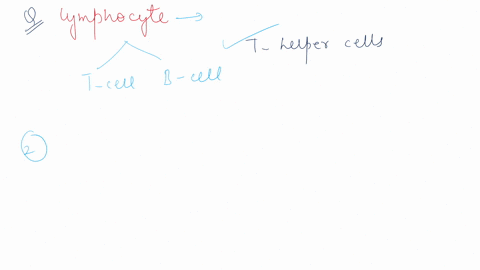 Q lymphocyte →
T- helper cells
T-cell B-cell
2